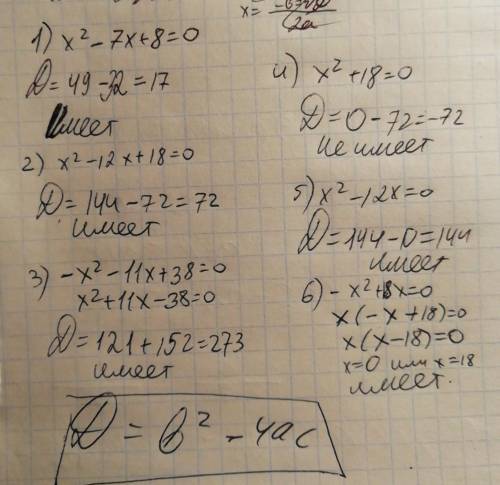 x = 
2a
1) x² - 7x + 8 = 0
D = 49 - 32 = 17
Имеет
2) x² - 12x + 18 = 0
D = 144 - 72 = 72
имеет
3) -x² - 11x + 38 = 0
x² + 11x - 38 = 0
D = 121 + 152 = 273
имеет
4) x² + 18 = 0
D = 0 - 72 = -72
не имеет
5) x² - 12x = 0
D = 144 - 0 = 144
имеет
6) -x² + 18x = 0
x(-x + 18) = 0
x(x - 18) = 0
x = 0 или x = 18
имеет.
D = b² - 4ac